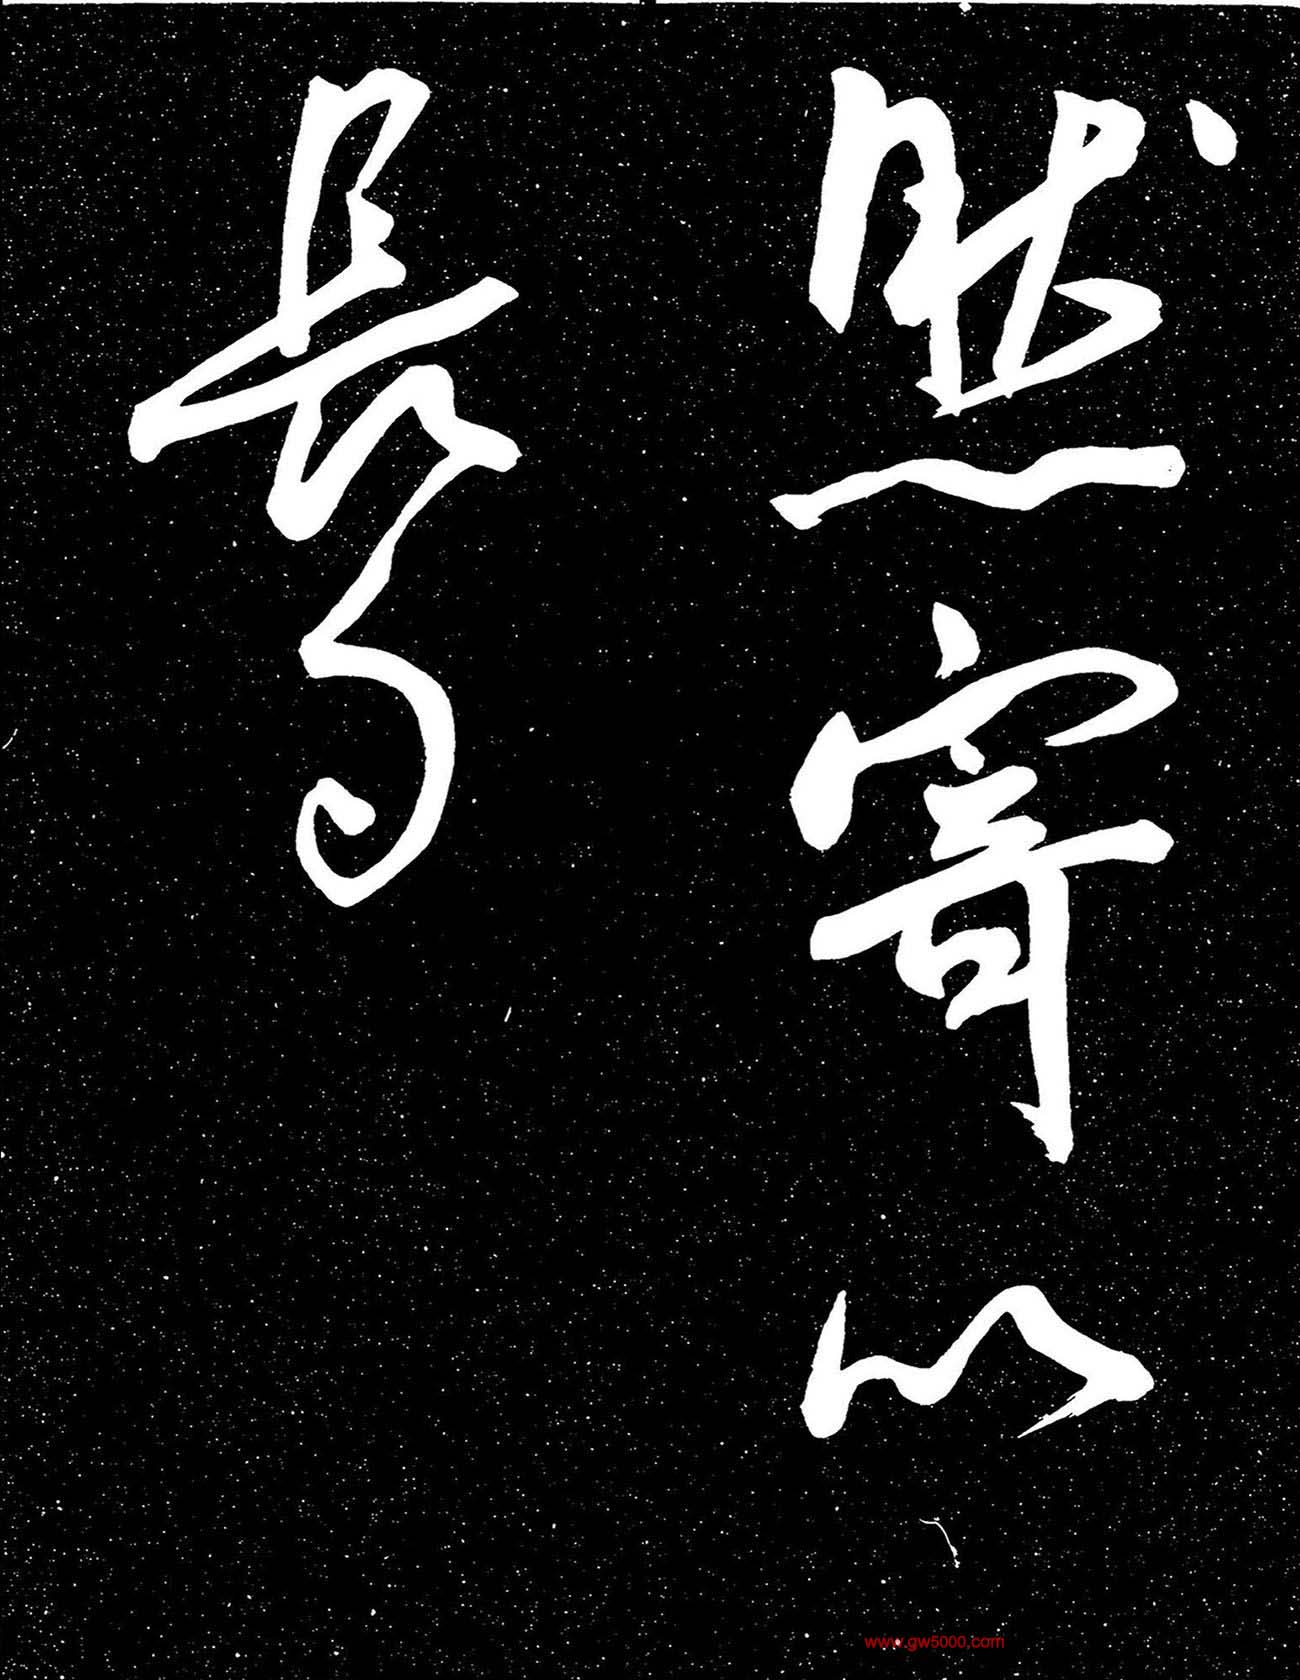 然寄以
長句
www.gw5000,com